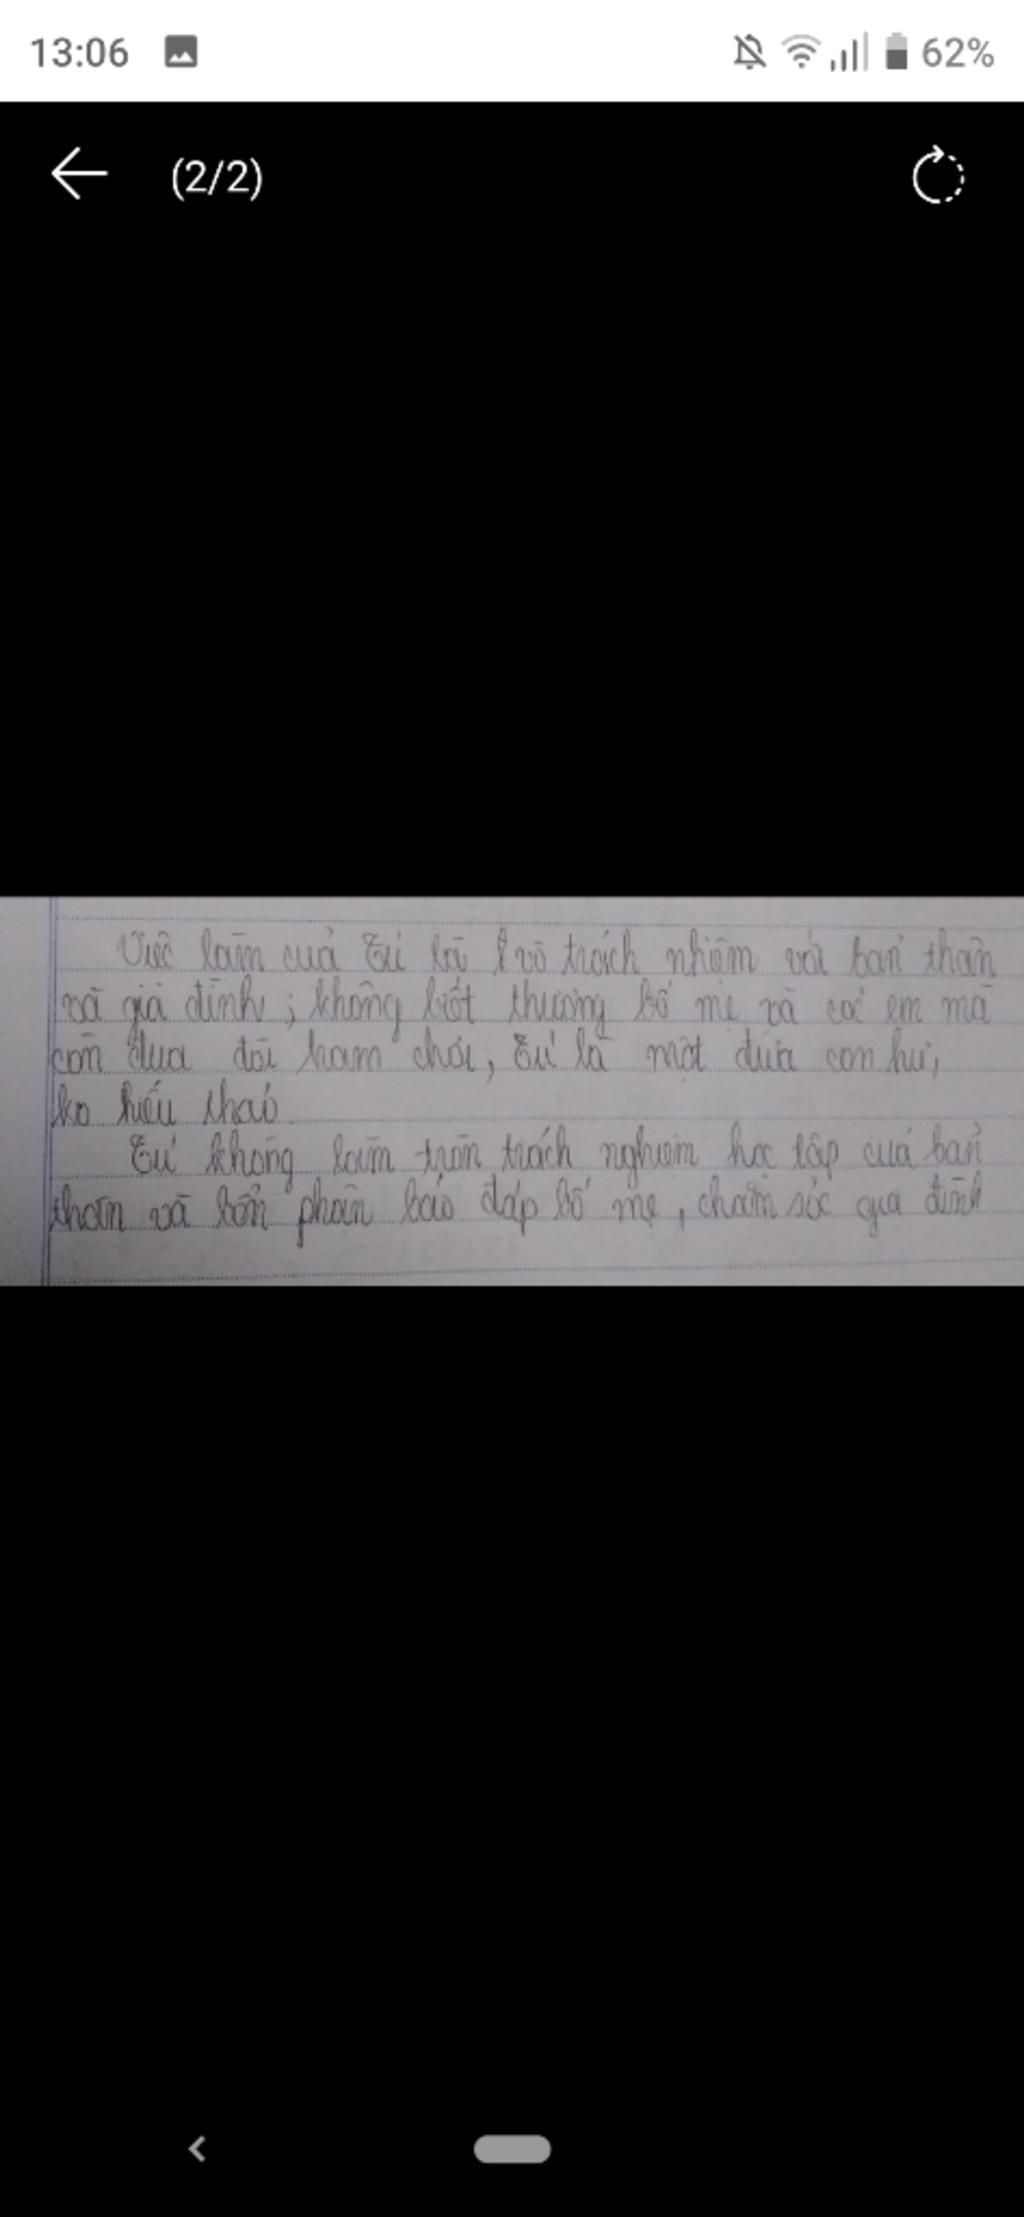 13:06 62%
(2/2)
Việc làm của Tú là vô trách nhiệm với bản thân
và gia đình; không biết thương bố mẹ và các em mà
còn đua đòi ham chơi, Tú là một đứa con hư,
ko hiếu thảo
Tú không làm tròn trách nghiệm học tập của bản
thân và bổn phận báo đáp bố mẹ, chăm sóc gia đình